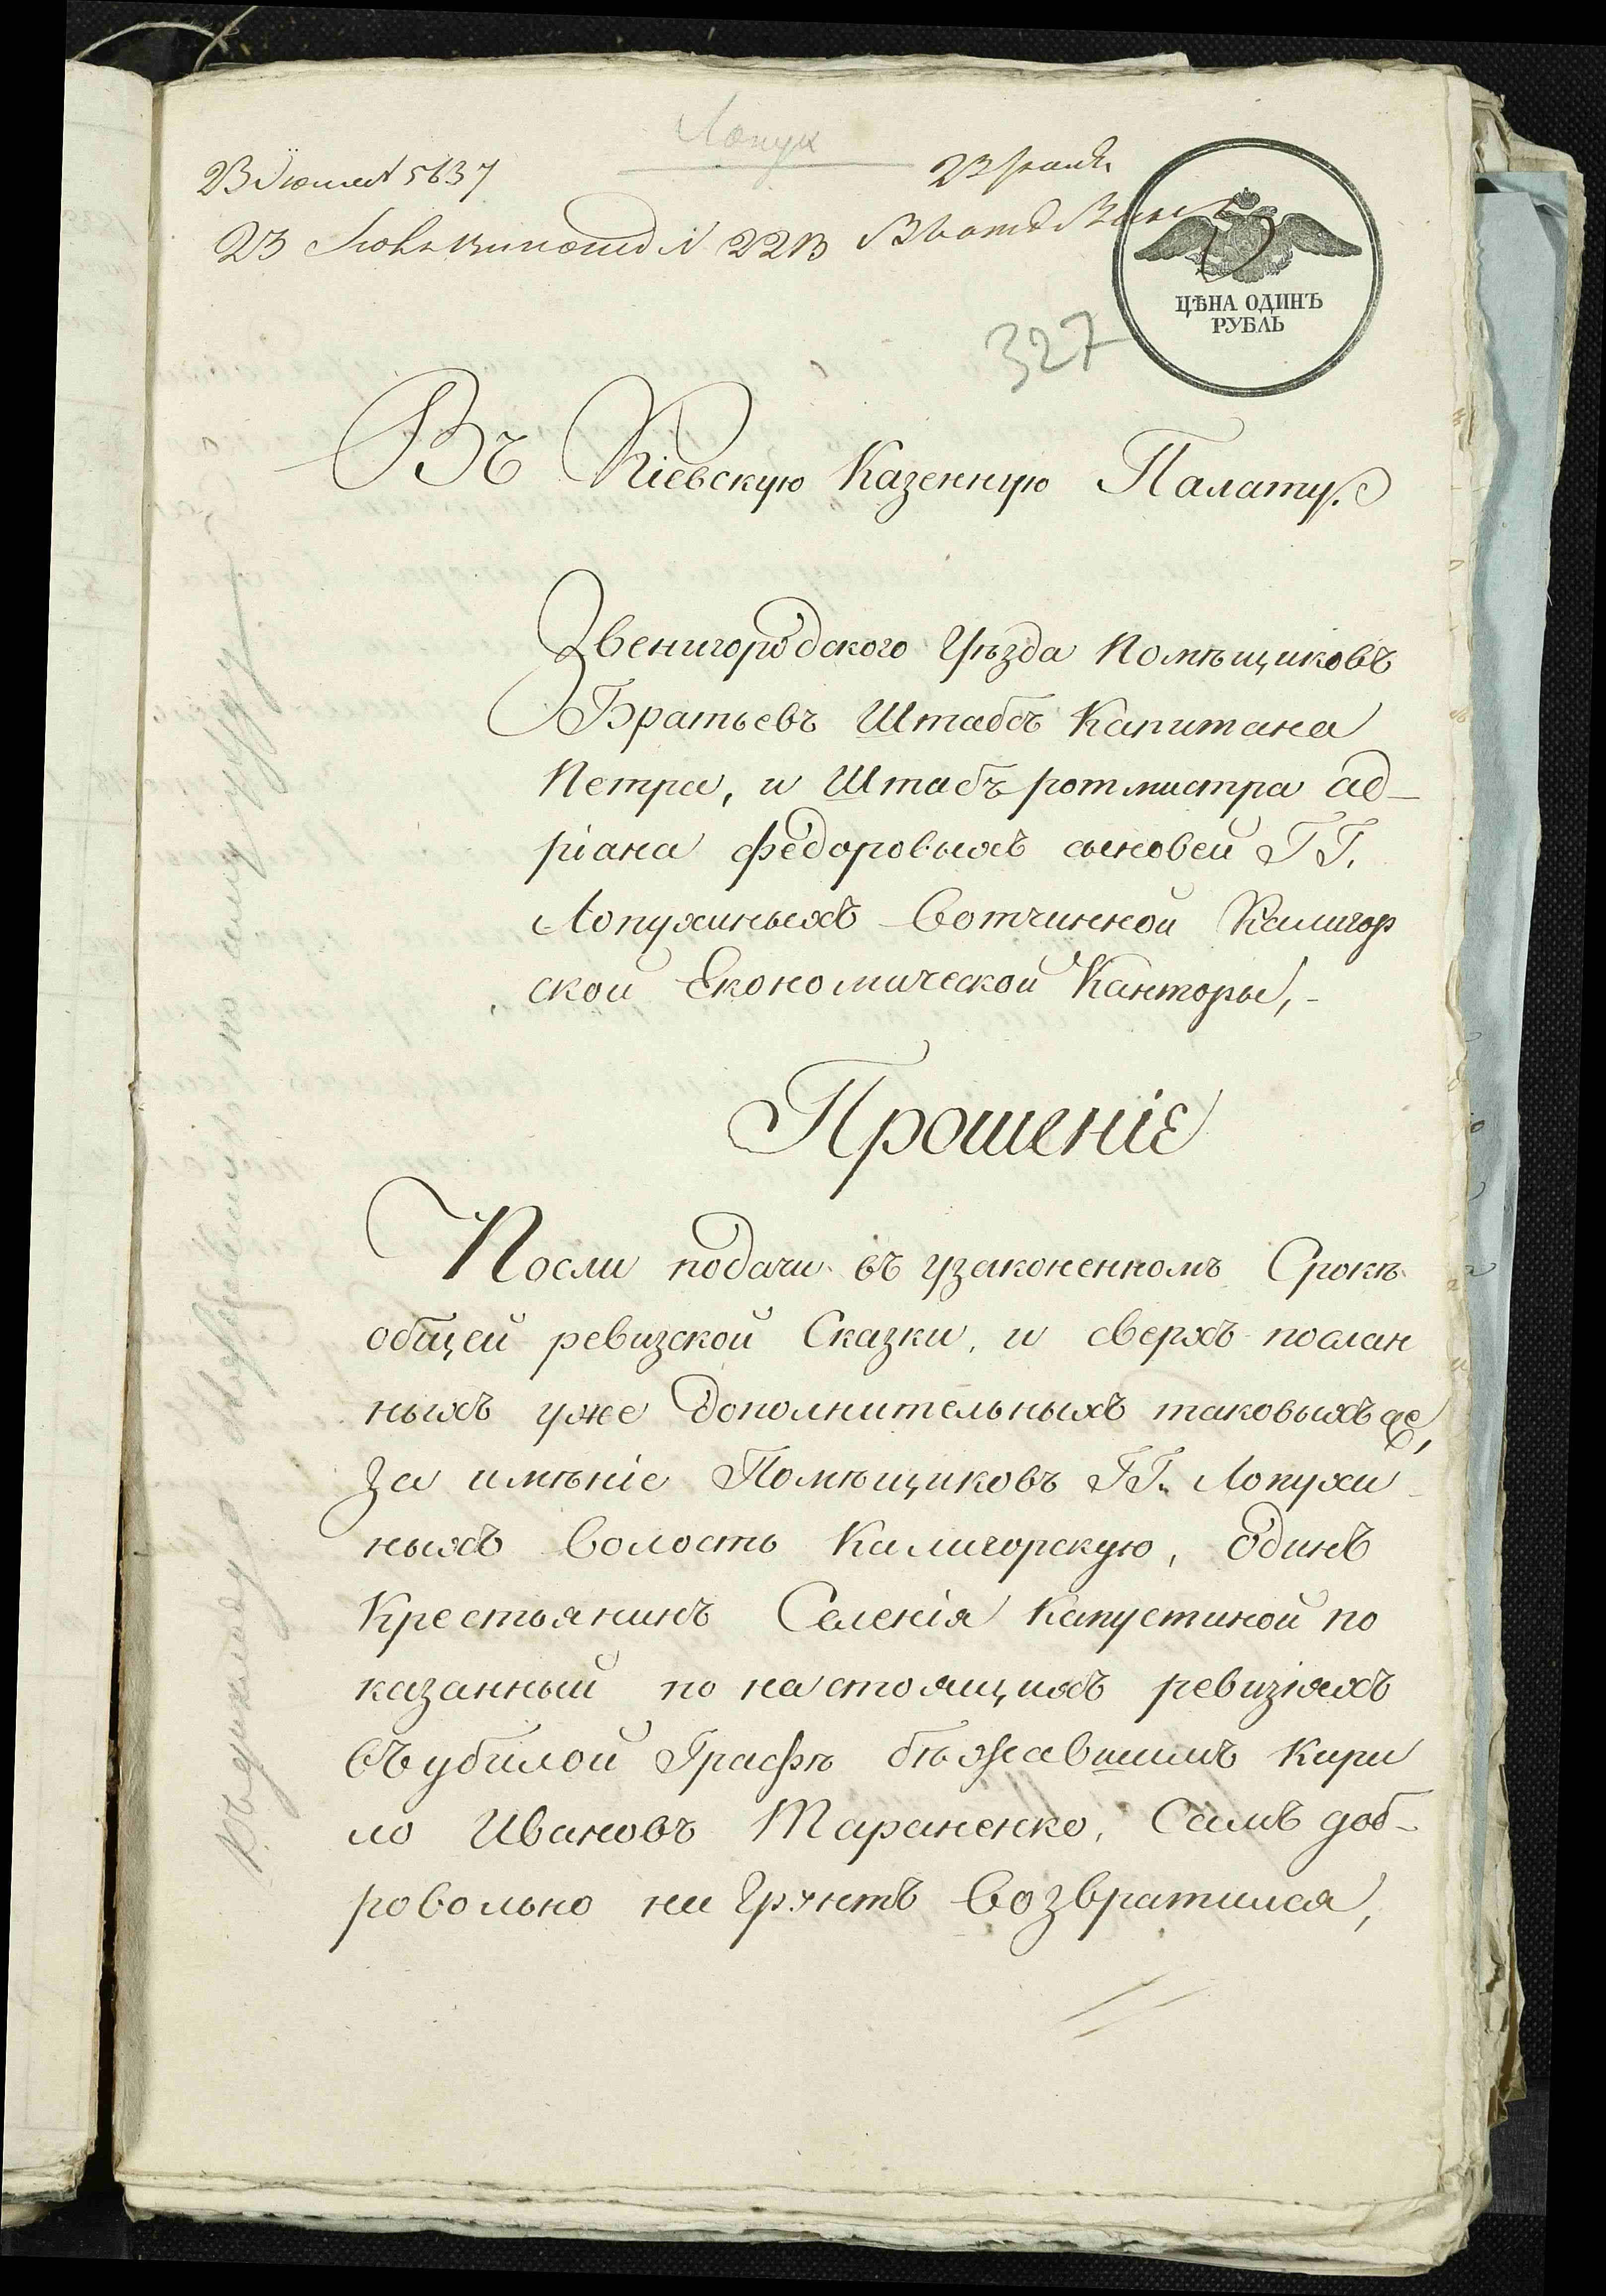 Лопух
327
ЦѢНА ОДИНЪ
РУБЛЬ
Въ Кіевскую Казенную Палату.
Звенигородского Уѣзда Помѣщиковъ
Братьевъ Штабсъ Капитана
Петра, и Штабъ ротмистра Ад-
ріана Федоровыхъ сыновей ГГ.
Лопухиныхъ Вотчинной Калигор
ской Економической Канторы,
Прошеніе
Посли подачи въ узаконенномъ Срокѣ
общей ревизской Сказки, и сверхъ послан
ныхъ уже дополнительныхъ таковыхъ
За имѣніе Помѣщиковъ ГГ. Лопухи
ныхъ волость Калигорскую, Одинъ
Крестьянинъ Селенія Капустиной по
казанный по настоящихъ ревизіяхъ
въ убилой Графѣ бѣжавшимъ Кири
ло Ивановъ Тараненко, Самъ доб-
ровольно на Грунтъ Возвратился,